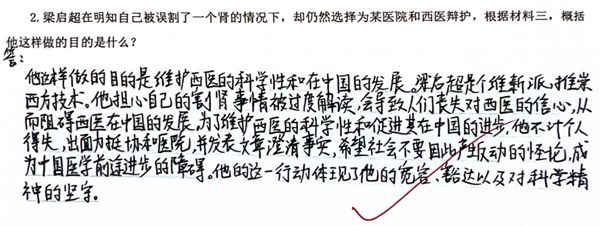 2. 梁启超在明知自己被误割了一个肾的情况下，却仍然选择为某医院和西医辩护，根据材料三，概括
他这样做的目的是什么？
答：
他这样做的目的是维护西医的科学性和在中国的发展。梁启超是个维新派，推崇
西方技术。他担心自己的割肾事情被过度解读，会导致人们丧失对西医的信心，从
而阻碍西医在中国的发展，为了维护西医的科学性和促进其在中国的进步，他不计个人
得失，出面力挺协和医院，并发表文章澄清事实，希望社会不要因此产生反动的怪论，成
为中国医学前途进步的障碍。他的这一行动体现了他的宽容、豁达以及对科学精
神的坚守。